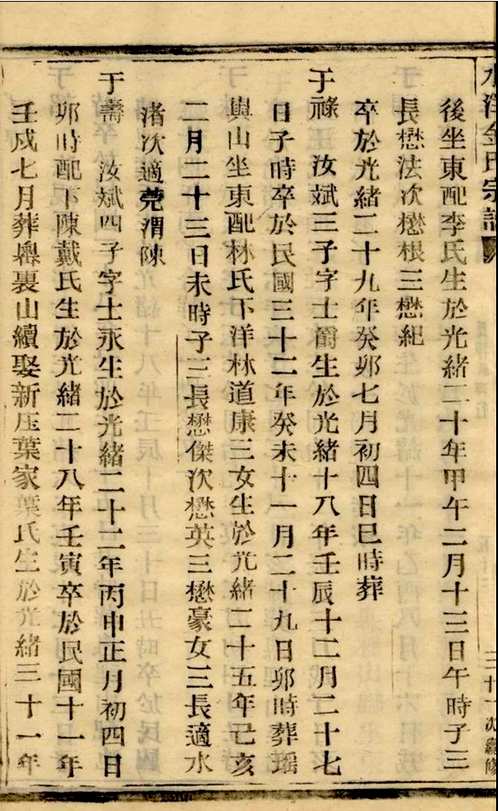 金氏宗
二十一次續修
後坐東配李氏生於光緒二十年甲午二月十三日午時子三
長懋法次懋根三懋紀
卒於光緒二十九年癸卯七月初四日巳時葬
于祿 汝斌三子字士爵生於光緒十八年壬辰十二月二十七
日子時卒於民國三十二年癸未十一月二十九日卯時葬瑶
與山坐東配林氏下洋林道康三女生於光緒二十五年己亥
二月二十三日未時子三長懋傑次懋英三懋豪女三長適水
渚次適莞渭陳
于壽 汝斌四子字士永生於光緒二十二年丙申正月初四日
卯時配下陳戴氏生於光緒二十八年壬寅卒於民國十一年
壬戌七月葬裏山續娶新庄葉家葉氏生於光緒三十一年